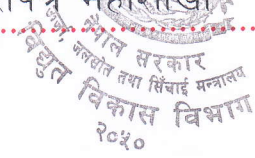 महाशाखा
नेपाल सरकार
जलस्रोत तथा सिँचाई मन्त्रालय
विद्युत विकास विभाग
२०५०